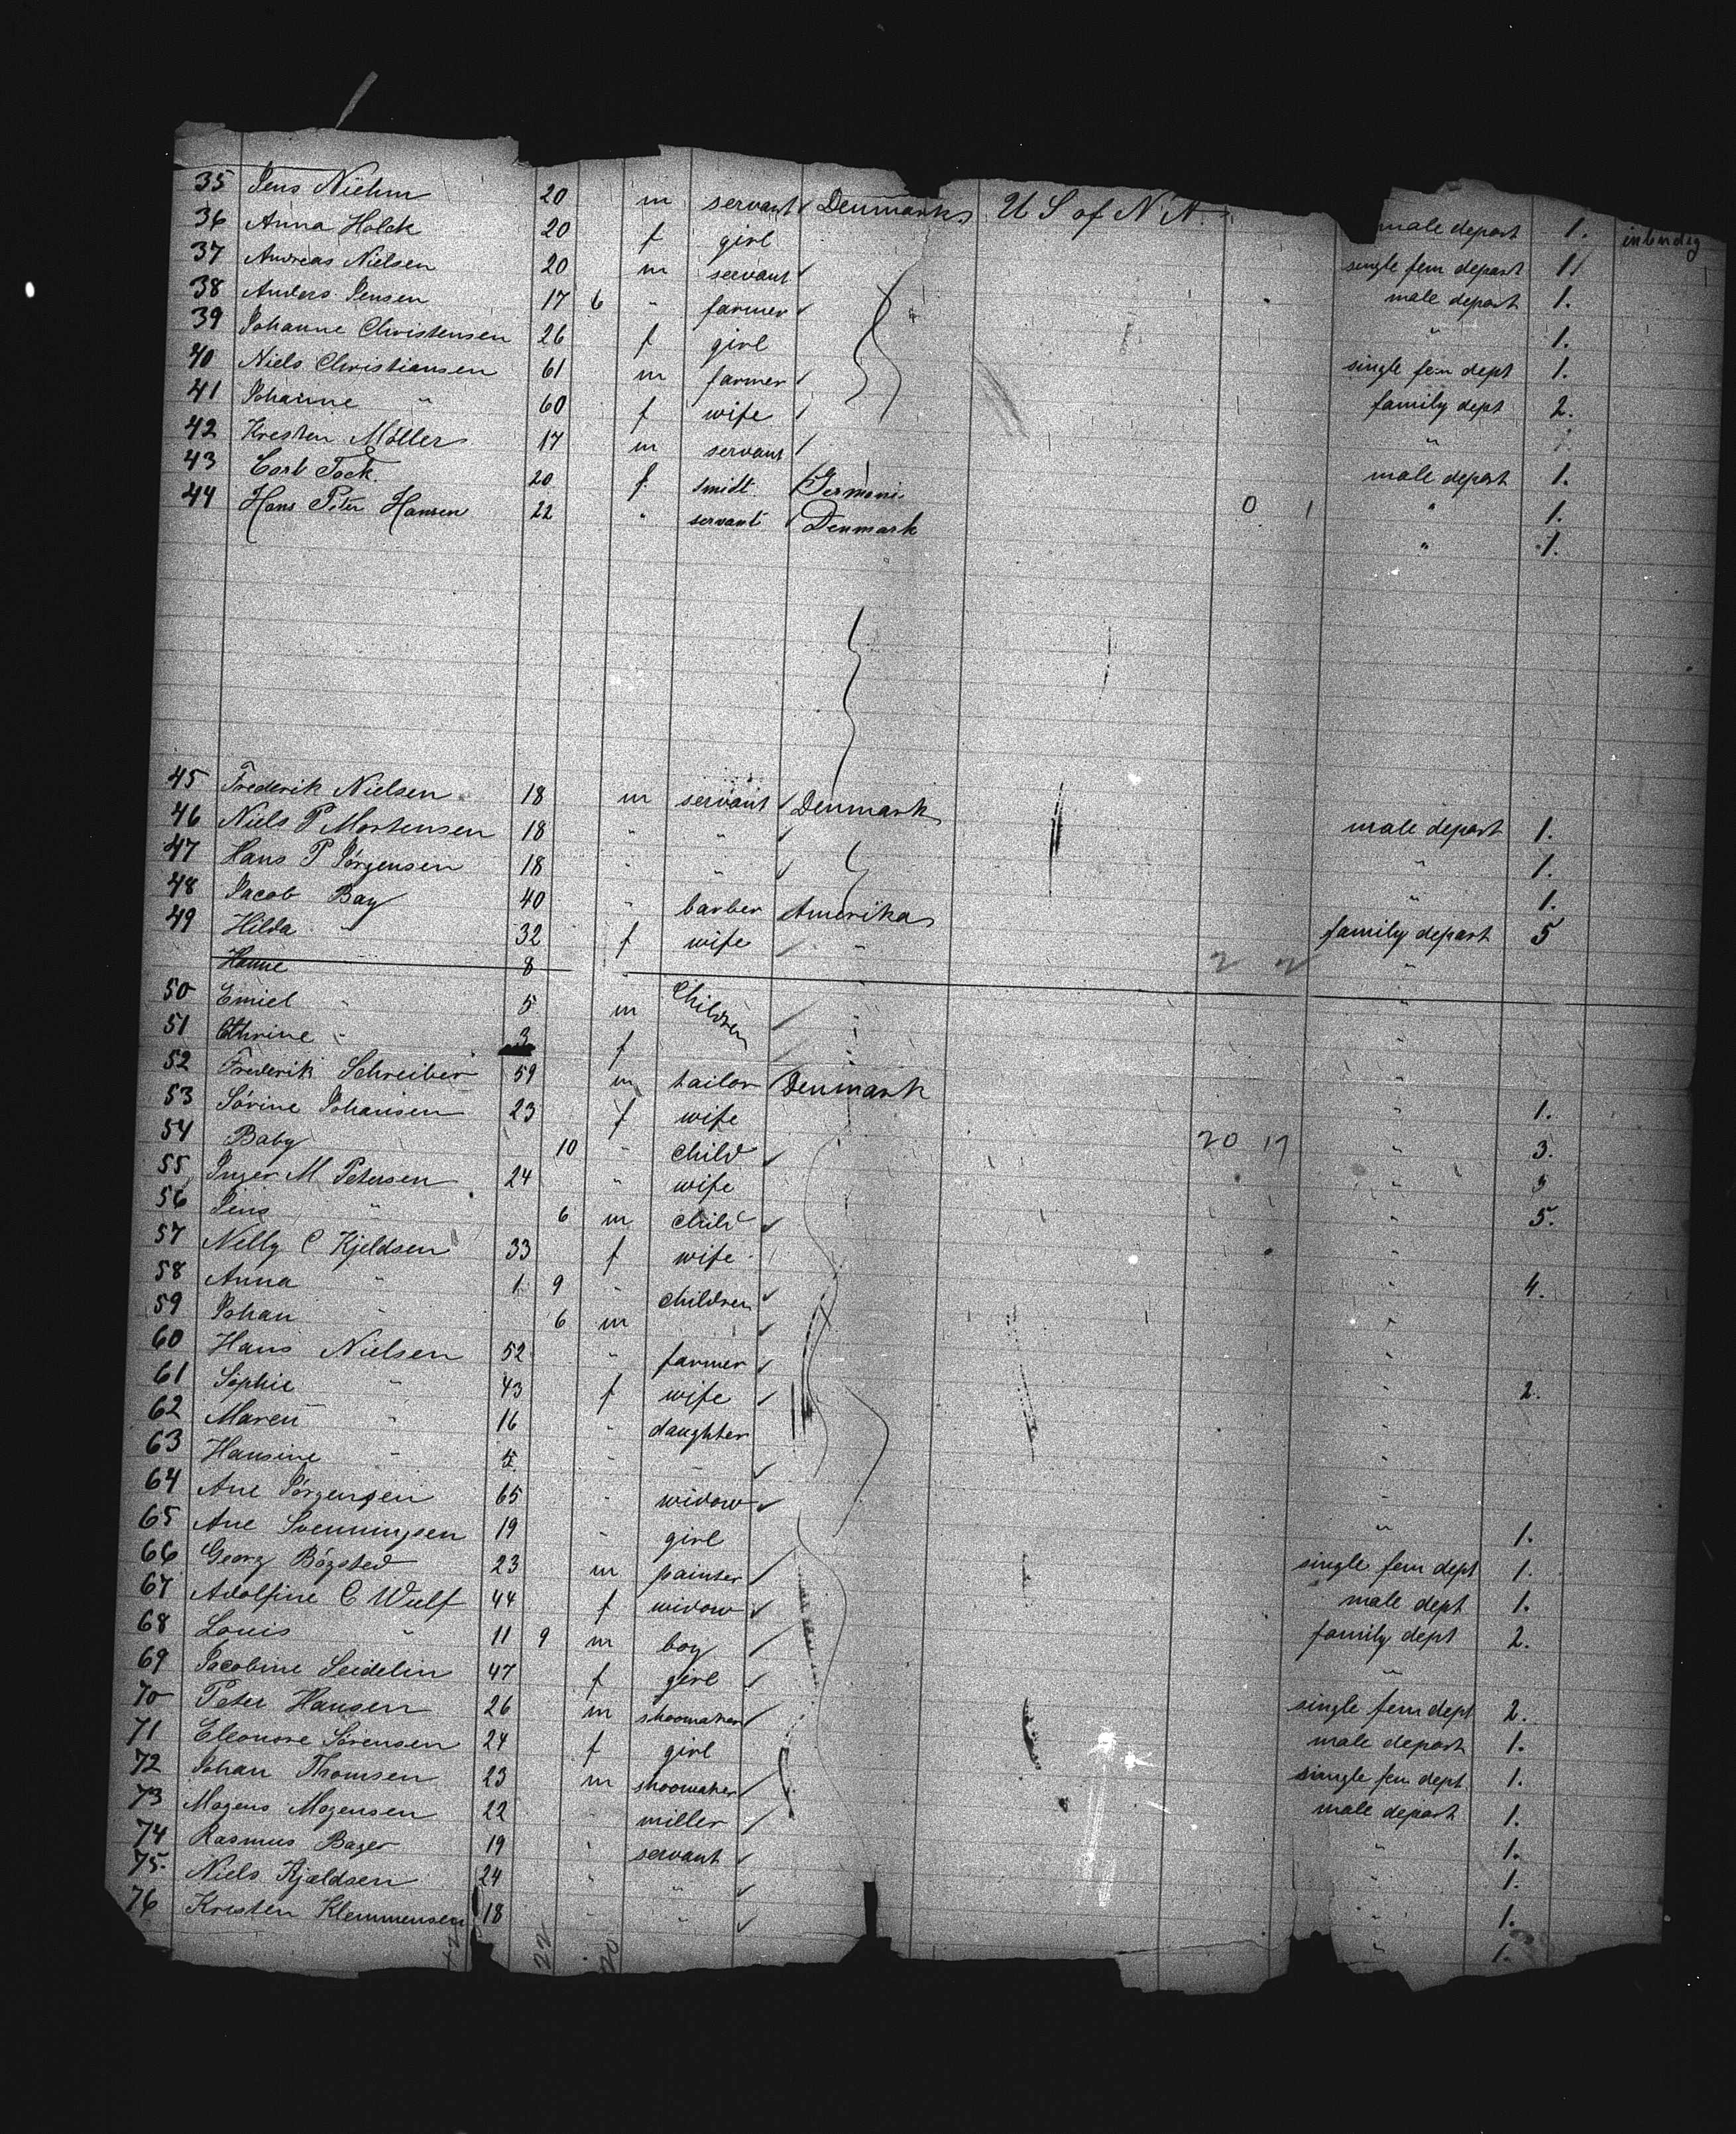 35 Jens Niehm 20 m servant Denmark U S of N A. male depart 1. inbndig
36 Anna Holck 20 f girl single fem depart 1
37 Andreas Nielsen 20 m servant male depart 1.
38 Anders Jensen 17 6 " farmer " 1.
39 Johanne Christensen 26 f girl single fem dept 1.
40 Niels Christiansen 61 m farmer family dept 2.
41 Johanne " 60 f wife "
42 Kresten Möller 17 m servant male depart 1.
43 Carl Tock. 20 f. smidt. Germani. 0 1 " 1.
44 Hans Peter Hansen 22 " servant Denmark " 1.
45 Frederik Nielsen 18 m servant Denmark male depart 1.
46 Niels P Mortensen 18 " " " 1.
47 Hans P Jörgensen 18 " " " 1.
48 Jacob Bay 40 " barber Amerika family depart 5
49 Hilda " 32 f wife " 2 2 "
Hanne " 8 "
50 Emiel " 5 m Children " "
51 Cthrine " 3 f "
52 Frederik Schreiber 59 m tailor Denmark " 1.
53 Sörine Johansen 23 f wife 20 17 " 3.
54 Baby 10 " child "
55 Inger M Petersen 24 " wife " 5.
56 Jens " 6 m child "
57 Nelly C Kjeldsen 33 f wife " 4.
58 Anna " 1 9 " children "
59 Johan " 6 m "
60 Hans Nielsen 52 " farmer " 2.
61 Sophie " 43 f wife "
62 Maren " 16 " daughter "
63 Hansine " 5 " " "
64 Ane Jörgensen 65 " widow " 1.
65 Ane Svenningsen 19 " girl single fem dept 1.
66 Georg Bögsted 23 m painter male dept 1.
67 Adolfine C Wulf 44 f widow family dept 2.
68 Louis " 11 9 m boy "
69 Jacobine Seidelin 47 f girl single fem dept 2.
70 Peter Hansen 26 m shoomaker male depart 1.
71 Eleonore Sörensen 24 f girl single fem dept. 1.
72 Johan Thomsen 23 m shoomaker male depart 1.
73 Mogens Mogensen 22 " miller " 1.
74 Rasmus Bager 19 " servant " 1.
75. Niels Kjældsen 24 " " " 1.
76 Kresten Klemmensen 18 " " " 1.
22 20